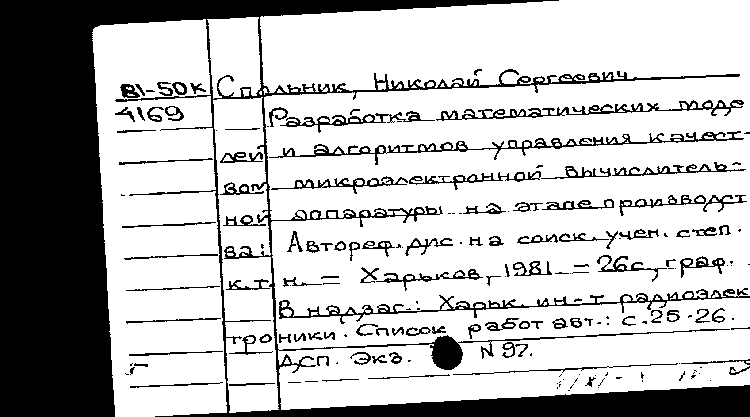 В1-50к Спольник, Николай Сергеевич.
4169 Разработка математических моде
лей и алгоритмов управления качест-
вом микроэлектронной вычислитель-
ной аппаратуры на этапе производст
ва: Автореф. дис. на соиск. учен. степ.
к.т.н. – Харьков, 1981. – 26с., граф.
В надзаг.: Харьк. ин-т радиоэлек
троники. Список работ авт.: с.25-26.
ДСП. Экз. N 97.